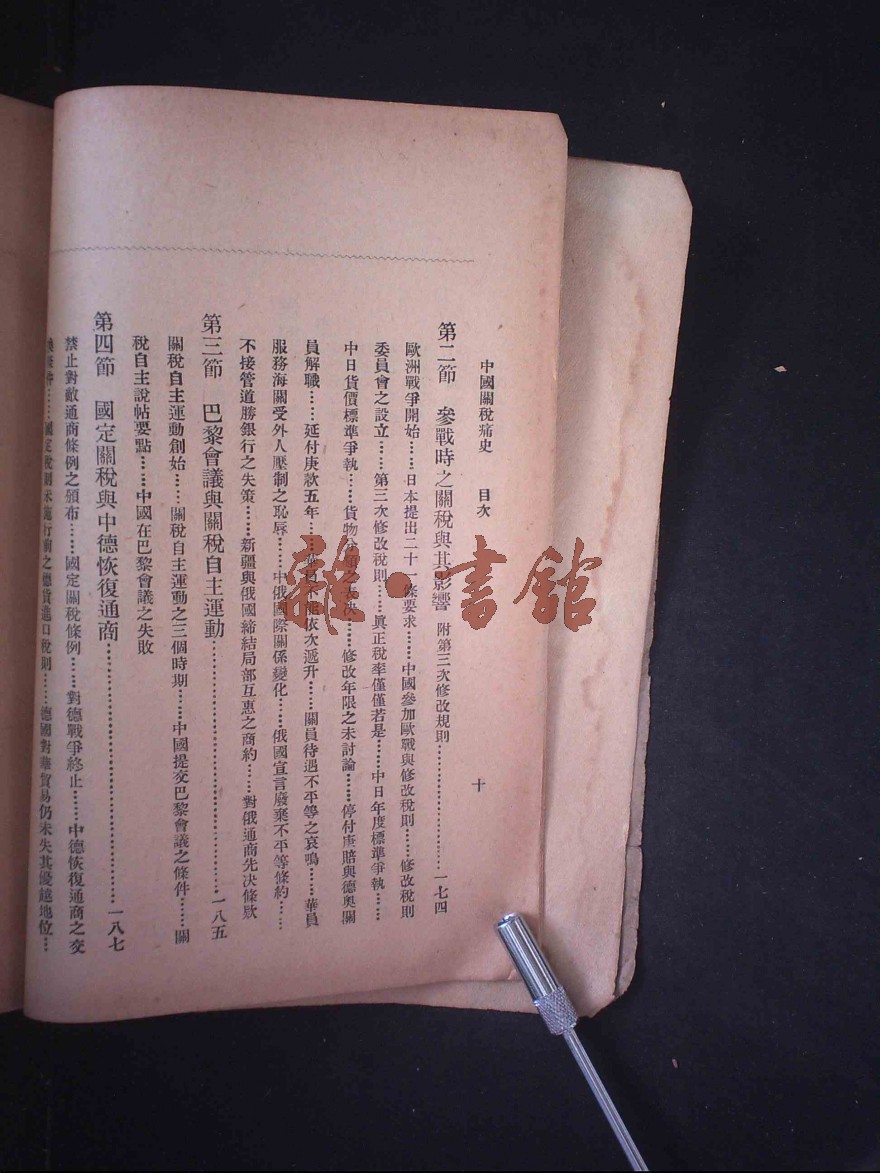 中國關稅痛史　目次　十
第二節　參戰時之關稅與其影響　附第三次修改規則……一七四
歐洲戰爭開始……日本提出二十一條要求……中國參加歐戰與修改稅則……修改稅則
委員會之設立……第三次修改稅則……眞正稅率僅僅若是……中日年度標準爭執……
中日貨價標準爭執……貨物分類之表決……修改年限之未討論……停付庚賠與德奧關
員解職……延付庚款五年……華員不能依次遞升……關員待遇不平等之哀鳴……華員
服務海關受外人壓制之恥辱……中俄國際關係變化……俄國宣言廢棄不平等條約……
不接管道勝銀行之失策……新疆與俄國締結局部互惠之商約……對俄通商先決條欵
第三節　巴黎會議與關稅自主運動……一八五
關稅自主運動創始……關稅自主運動之三個時期……中國提交巴黎會議之條件……關
稅自主說帖要點……中國在巴黎會議之失敗
第四節　國定關稅與中德恢復通商……一八七
禁止對敵通商條例之頒布……國定關稅條例……對德戰爭終止……中德恢復通商之交
……國定稅則未施行前之德貨進口稅則……德國對華貿易仍未失其優越地位…
雜·書館